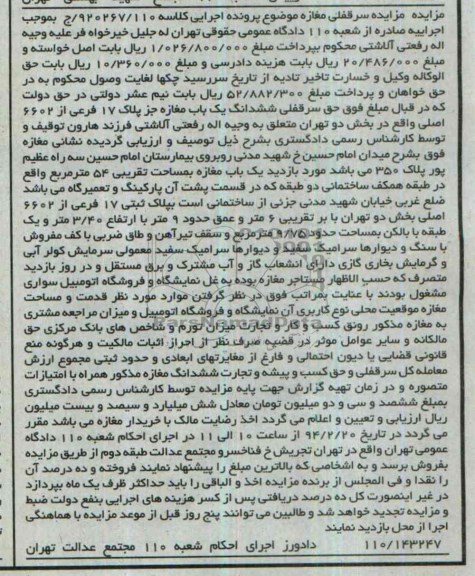 مزایده مزایده سرقفلی مغازه موضوع پرونده اجرایی کلاسه ۹۲۰۲۶۷/۱۱۰/ج بموجب
اجراییه صادره از شعبه ۱۱۰ دادگاه عمومی حقوقی تهران له جلیل خیرخواه فر علیه وجیه
اله رفعتی آلاشتی محکوم بپرداخت مبلغ ۱/۰۲۶/۸۰۰/۰۰۰ ریال بابت اصل خواسته و
مبلغ ۲۰/۴۸۶/۰۰۰ ریال بابت هزینه دادرسی و مبلغ ۱۰/۳۶۰/۰۰۰ ریال بابت حق
الوکاله وکیل و خسارت تاخیر تادیه از تاریخ سررسید چکها لغایت وصول محکوم به در
حق خواهان و پرداخت مبلغ ۵۲/۸۸۲/۳۰۰ ریال بابت نیم عشر دولتی در حق دولت
که در قبال مبلغ فوق حق سرقفلی ششدانگ یک باب مغازه جز پلاک ۱۷ فرعی از ۶۶۰۲
اصلی واقع در بخش دو تهران متعلق به وجیه اله رفعتی آلاشتی فرزند هارون توقیف و
توسط کارشناس رسمی دادگستری بشرح ذیل توصیف و ارزیابی گردیده نشانی مغازه
فوق بشرح میدان امام حسین خ شهید مدنی روبروی بیمارستان امام حسین سه راه عظیم
پور پلاک ۳۵۰ می باشد مورد بازدید یک باب مغازه بمساحت تقریبی ۵۴ مترمربع واقع
در طبقه همکف ساختمانی دو طبقه که در قسمت پشت آن پارکینگ و تعمیرگاه می باشد
ضلع غربی خیابان شهید مدنی جزئی از ساختمانی است بپلاک ثبتی ۱۷ فرعی از ۶۶۰۲
اصلی بخش دو تهران با بر تقریبی ۶ متر و عمق حدود ۹ متر با ارتفاع ۳/۴۰ متر و یک
طبقه با بالکن بمساحت حدود ۹/۷۵ مترمربع و سقف تیرآهن و طاق ضربی با کف مفروش
با سنگ و دیوارها سرامیک سفید و دیوارها سرامیک سفید معمولی سرمایش کولر آبی
و گرمایش بخاری گازی دارای انشعاب گاز و آب مشترک و برق مستقل و در روز بازدید
متصرف که حسب الاظهار مستاجر مغازه بوده به غل نمایشگاه و فروشگاه اتومبیل سواری
مشغول بودند با عنایت بمراتب فوق در نظر گرفتن موارد مورد نظر قدمت و مساحت
مغازه موقعیت محلی نوع کاربری آن نمایشگاه و فروشگاه اتومبیل و میزان مراجعه مشتری
به مغازه مذکور رونق کسب و کار و تجارت میزان تورم و شاخص های بانک مرکزی حق
مالکانه و سایر عوامل موثر در قضیه صرف نظر از احراز اثبات مالکیت و هرگونه منع
قانونی قضایی یا دیون احتمالی و فارغ از مغایرتهای ابعادی و حدود ثبتی مجموع ارزش
معامله کل سرقفلی و حق کسب و پیشه و تجارت ششدانگ مغازه مذکور همراه با امتیازات
متصوره و در زمان تهیه گزارش جهت پایه مزایده توسط کارشناس رسمی دادگستری
بمبلغ ششصد و سی و دو میلیون تومان معادل شش میلیارد و سیصد و بیست میلیون
ریال ارزیابی و تعیین و اعلام می گردد اخذ رضایت مالک با خریدار مغازه می باشد مقرر
می گردد در تاریخ ۹۴/۲/۲۰ از ساعت ۱۰ الی ۱۱ در اجرای احکام شعبه ۱۱۰ دادگاه
عمومی تهران واقع در تهران تجریش خ فناخسرو مجتمع عدالت طبقه دوم از طریق مزایده
بفروش برسد و به اشخاصی که بالاترین مبلغ را پیشنهاد نمایند فروخته و ده درصد آن
را نقدا و فی المجلس از برنده مزایده اخذ و الباقی را باید حداکثر ظرف یک ماه بپردازد
در غیر اینصورت کل ده درصد دریافتی پس از کسر هزینه های اجرایی بنفع دولت ضبط
و مزایده تجدید خواهد شد و طالبین می توانند پنج روز قبل از موعد مزایده با هماهنگی
اجرا از محل بازدید نمایند
۱۱۰/۱۴۳۲۴۷ دادورز اجرای احکام شعبه ۱۱۰ مجتمع عدالت تهران